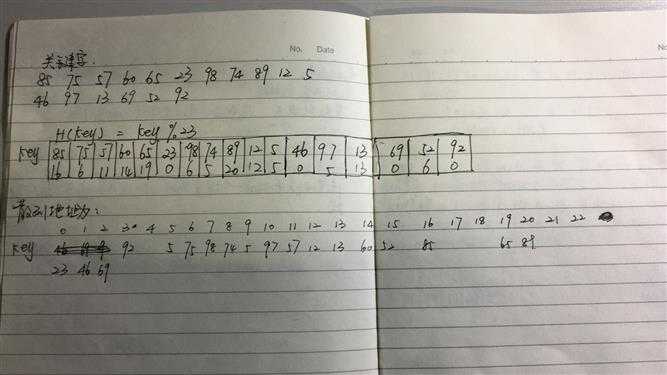 No. Date
No.
关键字:
85 75 57 60 65 23 98 74 89 12 5
46 97 13 69 52 92
H(key) = key % 23
key 85 75 57 60 65 23 98 74 89 12 5 46 97 13 69 52 92
16 6 11 14 19 0 6 5 20 12 5 0 5 13 0 6 0
散列地址为:
0 1 2 3 4 5 6 7 8 9 10 11 12 13 14 15 16 17 18 19 20 21 22
key 92 5 75 98 74 5 97 57 12 13 60 52 85 65 89
23 46 69